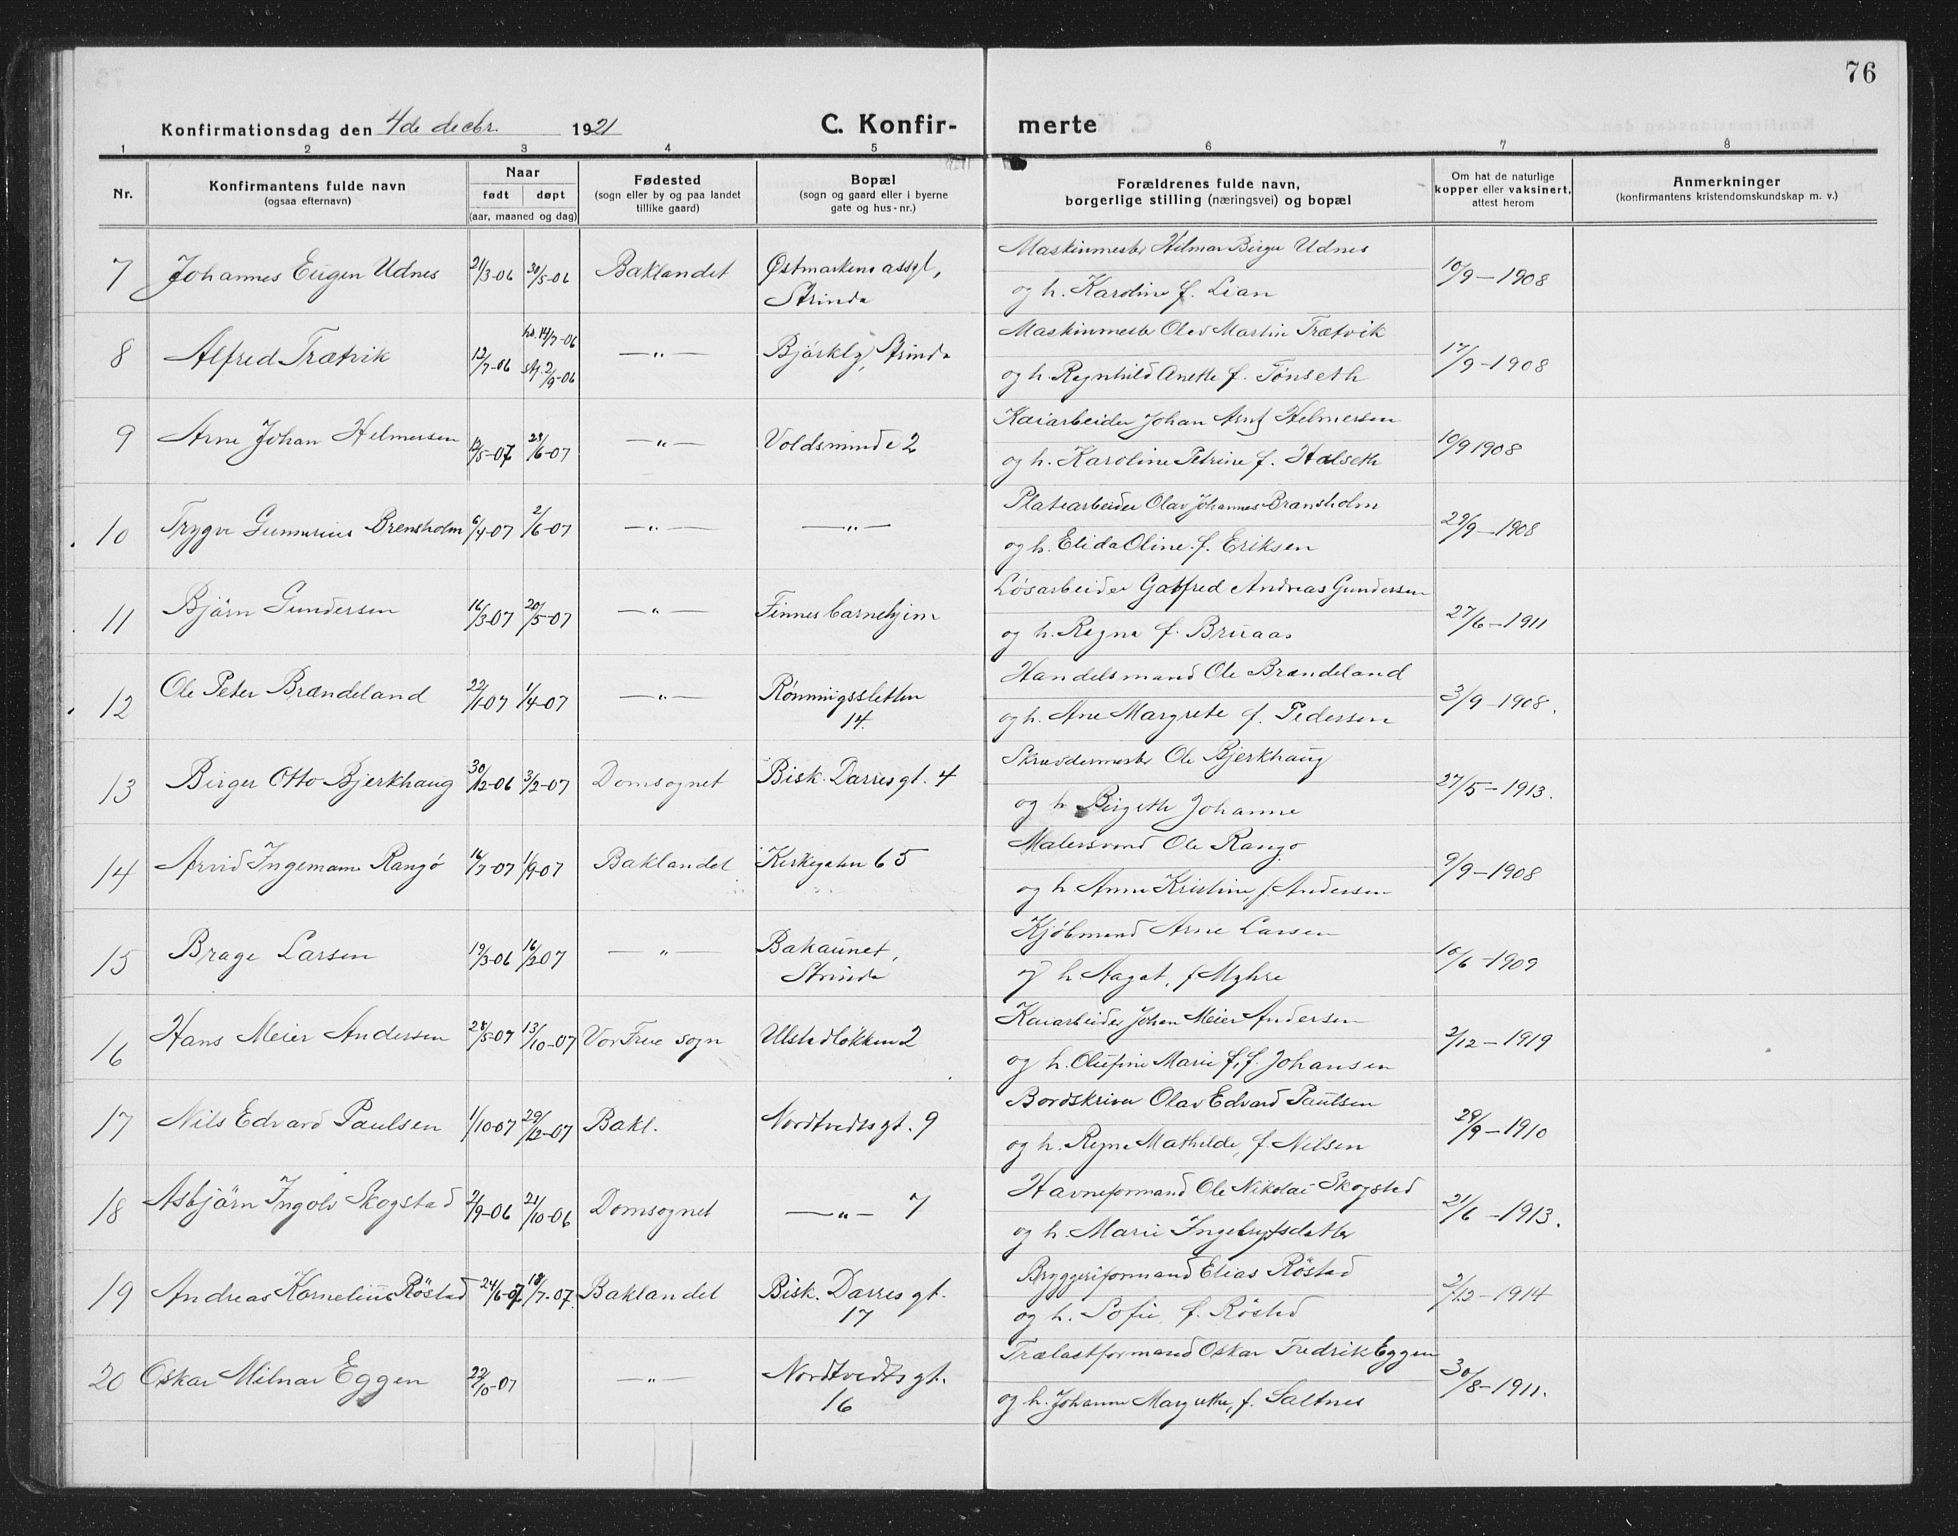 76
Konfirmationsdag den 4de decbr. 1921 C. Konfirmerte
1 2 3 4 5 6 7 8
Nr. Konfirmantens fulde navn (ogsaa efternavn) Naar født døpt (aar, maaned og dag) Fødested (sogn eller by og paa landet tillike gaard) Bopæl (sogn og gaard eller i byerne gate og hus-nr.) Forældrenes fulde navn, borgerlige stilling (næringsvei) og bopæl Om hat de naturlige kopper eller vaksinert, attest herom Anmerkninger (konfirmantens kristendomskundskap m. v.)
7 Johannes Eugen Udnes 21/3-06 30/5-06 Baklandet Østmarkens asyl, Maskinmester Hilmar Birger Udnes 10/9-1908
Strinda og h. Karoline f. Lian
8 Alfred Trætvik 12/7-06 hd. 14/7-06 stf. 2/9-06 —„— Bjørkly, Strinda Maskinmester Olav Martin Trætvik 17/9-1908
og h. Regnhild Anette f. Tönseth
9 Arne Johan Helmersen 12/5-07 23/6-07 —„— Voldsminde 2 Kaiarbeider Johan Arnt Helmersen 10/9 1908
og h. Karoline Petrine f. Halseth
10 Trygve Gunnerius Brensholm 6/4-07 2/6-07 —„— —„— Platearbeider Olav Johannes Brænsholm 29/9-1908
og h. Elida Oline f. Eriksen
11 Björn Gundersen 16/3-07 20/5-07 —„— Finnes barnehjem Løsarbeider Gotfred Andreas Gundersen 27/6-1911
og h. Regna f. Bruaas
12 Ole Peter Brændeland 22/1-07 1/4-07 —„— Rønningssletten Handelsmand Ole Brændeland 3/9-1908.
14. og h. Ane Margrete f. Pedersen
13 Birger Otto Bjerkhaug 30/12-06 3/2-07 Domsognet Bisk. Darres gt. 4 Skræddermester Ole Bjerkhaug 27/5-1913.
og h. Birgith Johanne
14 Arvid Ingemann Rangö 16/7-07 1/9-07 Baklandet Kirkegaten 65 Malersvend Ole Rangö 9/9-1908
og h Anna Kristine, f Andersen
15 Brage Larsen 19/3-06 16/2 07 —„— Bakaunet, Kjöbmand Arne Larsen 10/6-1909
Strinda og h Aagot, f Myhre
16 Hans Meier Andersen 28/5-07 13/10-07 Vor Frue sogn Ulstadløkken 2 Kaiarbeider Johan Meier Andersen 2/12-1919
og h. Olufine Marie f, f. Johansen
17 Nils Edvard Paulsen 1/10-07 29/12-07 Bakl. Nordtvedtsgt. 9 Bordskriver Olav Edvard Paulsen 29/9-1910
og h. Regna Mathilde, f Nilsen
18 Asbjörn Ingolv Skogstad 2/9-06 21/10-06 Domsognet —„— 7 Havneformand Ole Nikolai Skogstad 21/6-1913.
og h. Marie Ingebrigtsdatter
19 Andreas Kornelius Röstad 24/6-07 18/7-07. Baklandet Bisk. Darres gt. Bryggeriformand Elias Röstad 2/12-1914
17 og h. Sofie f. Röstad
20 Oskar Milnar Eggen 22/10-07 —„— Nordtvedts gt. Trælastformand Oskar Fredrik Eggen 30/8-1911.
16 og h. Johanne Margrethe, f. Saltnes